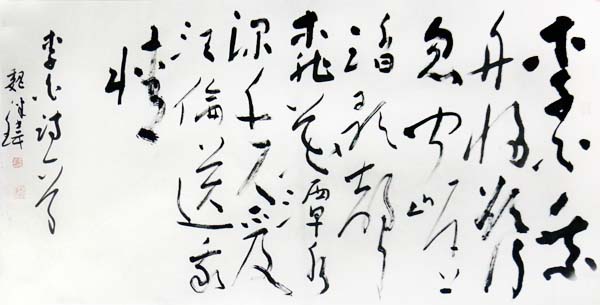 李白乘
舟将欲行
忽闻岸上
踏歌聲
桃花潭水
深千尺不及
汪倫送我
情
李白诗一首
魏